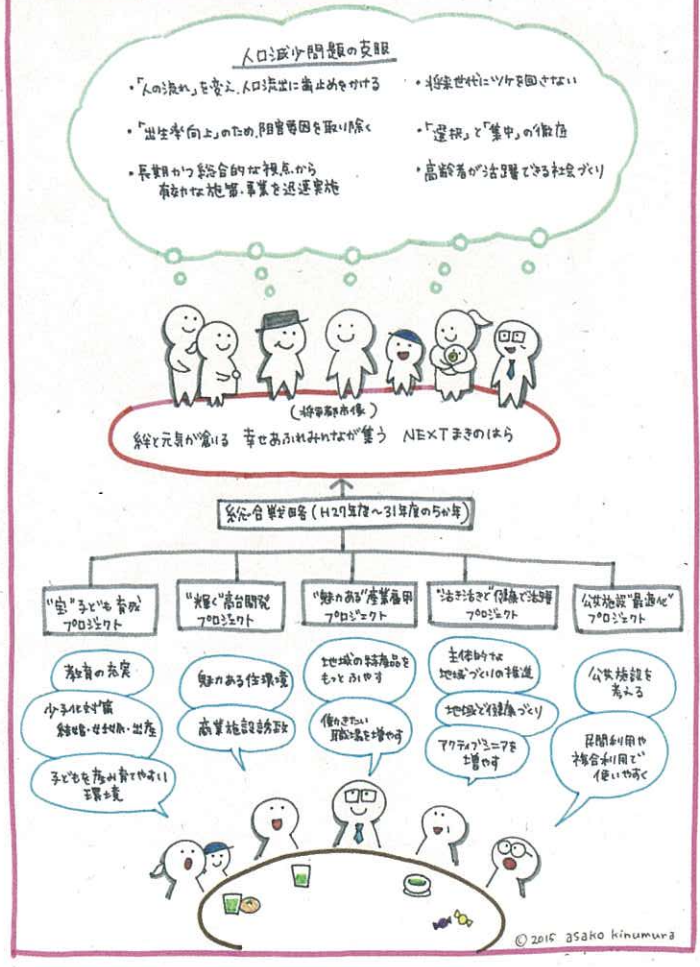 人口減少問題の克服
・「人の流れ」を変え、人口流出に歯止めをかける
・「出生率向上」のため、阻害要因を取り除く
・長期かつ総合的な視点から
有効な施策・事業を迅速実施
・将来世代にツケを回さない
・「選択」と「集中」の徹底
・高齢者が活躍できる社会づくり
(将来都市像)
絆と元気が創る 幸せあふれみんなが集う NEXTまきのはら
総合戦略(H27年度〜31年度の5か年)
"宝"子ども育成
プロジェクト
"輝く"高台開発
プロジェクト
"魅力ある"産業雇用
プロジェクト
"活き活きと"健康で活躍
プロジェクト
公共施設"最適化"
プロジェクト
教育の充実
少子化対策
結婚・妊娠・出産
子どもを産み育てやすい
環境
魅力ある住環境
商業施設誘致
地域の特産品を
もっとふやす
働きたい
職場を増やす
主体的な
地域づくりの推進
地域で健康づくり
アクティブシニアを
増やす
公共施設を
考える
民間利用や
複合利用で
使いやすく
© 2015 asako kinumura